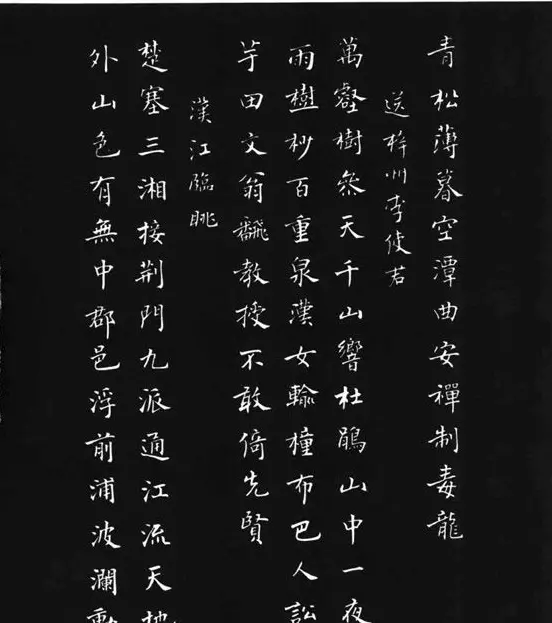 青松薄暮空潭曲安禪制毒龍
送梓州李使君
萬壑樹參天千山響杜鵑山中一夜
雨樹杪百重泉漢女輸橦布巴人訟
芋田文翁翻教授不敢倚先賢
漢江臨眺
楚塞三湘接荊門九派通江流天地
外山色有無中郡邑浮前浦波瀾動